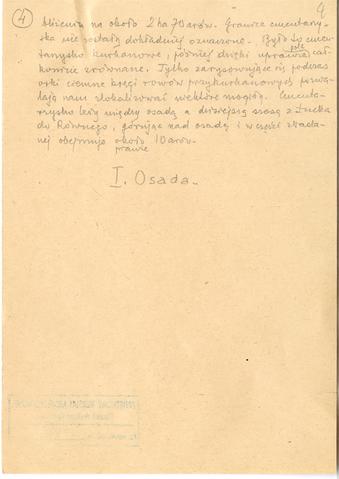 4
4
bliżeniu na około 2 ha 70 arów. Granice cmentarzy-
ska nie zostały dokładniej oznaczone. Było to cmen-
tarzysko kurhanowe, później dzięki uprawie całko-
pól
wicie zrównane. Tylko zarysowujące się podczas
orki ciemne kręgi rowów przykurhanowych pozwa-
lają nam zlokalizować niektóre mogiły. Cmenta-
rzysko leży między osadą a dzisiejszą szosą z Łucka
do Równego, górując nad osadą i w części zbada-
nej obejmuje około 10 arów.
prawie
I. Osada.